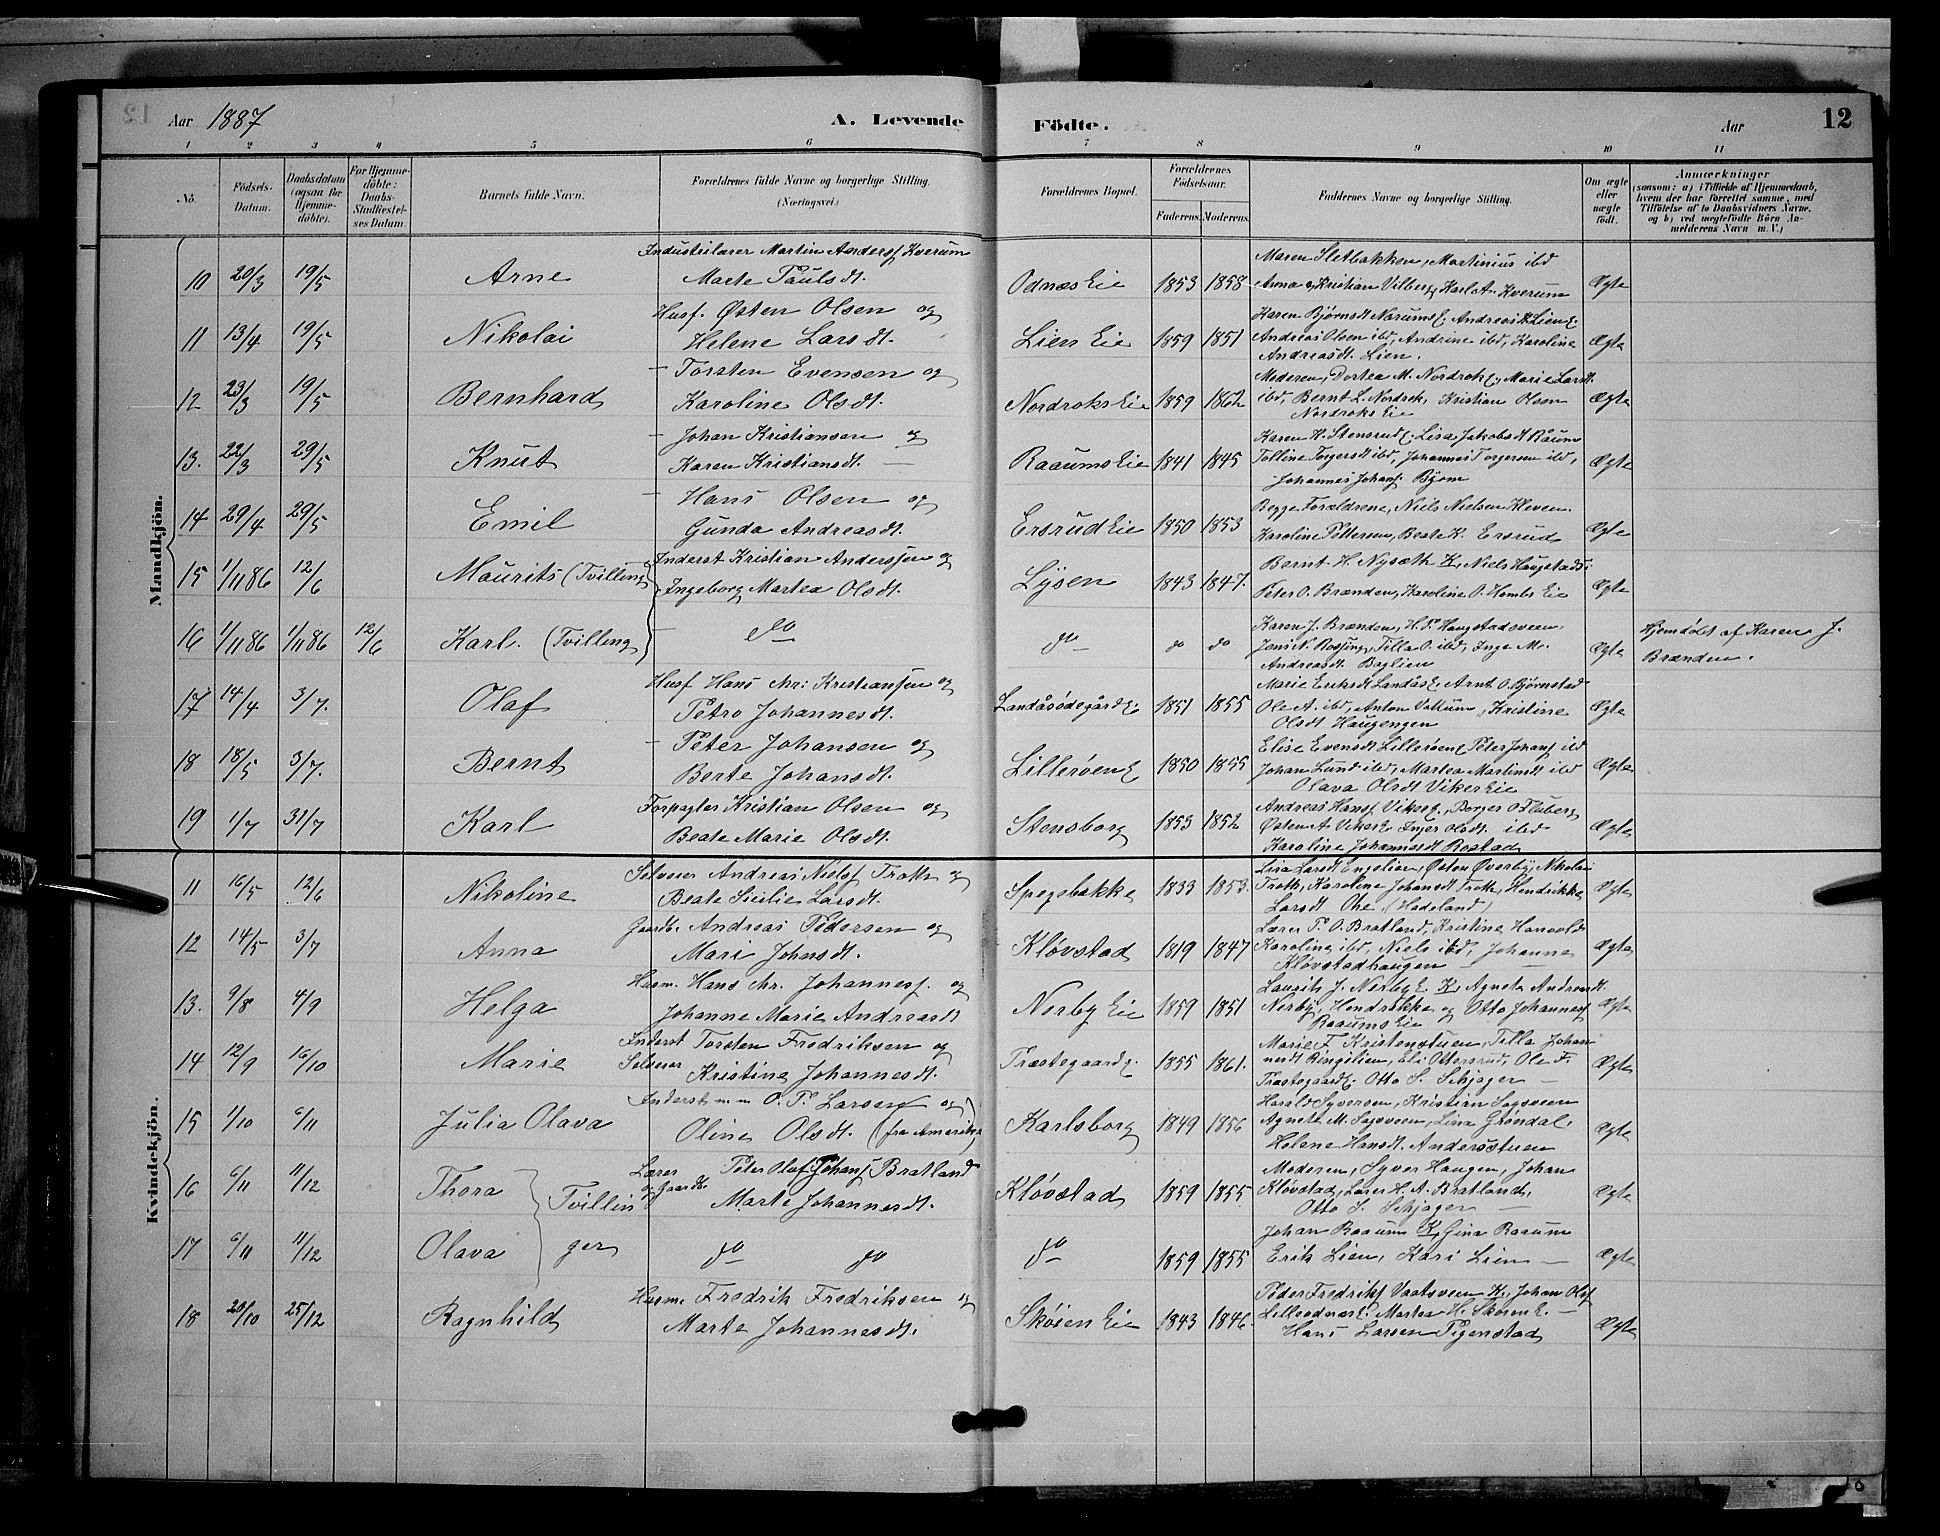 Aar 1887 A. Levende Födte. Aar 12
1 2 3 4 5 6 7 8 9 10 11
No. Födsels-Datum. Daabsdatum (ogsaa för Hjemmedöbte). For Hjemmedöbte: Daabs-Stadfæstelses Datum. Barnets fulde Navn. Forældrenes fulde Navne og borgerlige Stilling. (Næringsvei.) Forældrenes Bopæl. Forældrenes Födselsaar. Faderens. Moderens. Faddernes Navne og borgerlige Stilling. Om ægte eller uægte födt. Anmærkninger (saasom: a) i Tilfælde af Hjemmedaab, hvem der har forrettet samme, med Tilföielse af to Daabsvidners Navne, og b) ved uegtefödte Börn Anmelderens Navn m. V.)
Mandkjön.
Industrilærer Martin Anders. Kverum Maren Sletbakken, Martinius ibd
10 20/3 19/5 Arne Marte Paulsdt. Odnæs Eie 1853 1858 Anna og Kristian Velberg, Karl A. Kverum Ægte
Husf. Østen Olsen og Karen Bjørnsdt Narumse. Andreas Lien E.
11 13/4 19/5 Nikolai Helene Larsdt. Liens Eie 1859 1851 Andreas Olsen ibd, Andrine ibd, Karoline Ægte
Andreasdt. Lien.
- Torsten Evensen og Moderen, Dortea M. Nordrok E., Marie Larsdt.
12 23/3 19/5 Bernhard Karoline Olsdt. Nordroks Eie 1859 1862 ibd, Bernt L. Nordrok, Kristian Olsen Ægte
Nordroks Eie
- Johan Kristiansen og Karen H. Stensrud E. Lisa Jakobsdt Raaum
13. 22/3 29/5 Knut Karen Kristiansdt. Raaums Eie 1841 1845 Tolline Torgersdt ibd, Johannes Torgersen ibd, Ægte
Johannes Johans.
- Hans Olsen og Begge Forældrene, Niels Nielsen Kleven.
14 29/4 29/5 Emil Gunda Andreasdt. Ersrud Eie 1850 1853 Karoline Pettersen, Beate K. Ersrud Ægte
Inderst Kristian Anderssen og Bernt H. Nysæth K, Niels Haugstads.
15 1/11 86 12/6 Maurits (Tvilling) Ingeborg Martea Olsdt. Lysen 1843 1847. Peter O. Brænden, Karoline O. Eie Ægte
Karen J. Brænden, H. P. Haugstadsveen.
16 1/11 86 1/11 86 12/6 Karl. (Tvilling) - do - do - do do Jens N. Tilla O. ibd, Inge M. Ægte Hjemdøbt af Karen J.
Andreasdt. Baglien Brænden.
Husf Hans Chr: Kristiansen og Marie Eriksdt Landås E. Arnt O. Bjørnstad
17 14/4 3/7. Olaf Petra Johannesdt. Landåsødegård E. 1851 1855 Ole A. ibd, Anton Kristine Ægte
Olsdt Haugengen
- Peter Johansen og Elise Evensdt Lillerøen E, Peter Johans ibd
18 18/5 3/7. Bernt Berte Johansdt. Lillerøen E 1850 1855 Johan Lund ibd, Martea Martinsdt ibd Ægte
Olava Olsdt Viker Eie
Forpagter Kristian Olsen og Andreas Hans. Viker E., Borger O Fluberg
19 1/7 31/7 Karl Beate Marie Olsdt. Stensborg 1853 1852 Østen A. Viker E Inger Olsdt. ibd Ægte
Karoline Johannesdt Rostad
Kvindekjön.
Selveier Andreas Niels. Troth og Lisa Larsdt Engelien, Østen Øverby, Nikolai
11 16/5 12/6 Nikoline Beate Sicilie Larsdt. Spegsbakke 1833 1853. Troth, Karoline Johansdt Troth, Hendrikke Ægte
Larsdt (Hadeland)
Gaardb. Andreas Pedersen og Lærer P. O. Bratland, Kristine
12 14/5 3/7 Anna Mari Johnsdt. Kløvstad 1819 1847 Karoline ibd, Niels ibd, Johanne Ægte
Kløvstadhaugen
Husm. Hans Chr. Johannes. og Laurits J. Nerby E. K, Agnete Andreasdt.
13. 9/8 4/9 Helga Johanne Marie Andreasdt Nerby Eie 1859 1851 Nerby, Hendrikke og Otto Johannes. Ægte
Raaums Eie
Inderst Torsten Fredriksen og Marie F. Kristenstuen, Tilla Johan-
14 12/9 16/10 Marie Selveier Kristine Johannesdt. Præstegaard E. 1855 1861. nesdt Ringelien, Eli Ottersrud, Ole F. Ægte
Præstegaard E. Otto S. Schjager -
Inderst m m O. P. Larsen og Harald Syversen, Kristian Sagveen
15 1/10 6/11 Julia Olava Oline Olsdt. (fra Amerika) Karlsborg 1849 1856 Agnete M. Sagveen, Lina Grøndal, Ægte
Helene Hansdt. Andersstuen
Lærer og Gaardb. Peter Olaf Johans. Bratland Moderen, Syver Haugen, Johan
16 6/11 11/12 Thora Tvillin Marte Johannesdt. Kløvstad 1859 1855 Kløvstad, Lærer H. A. Bratland, Ægte
Otto S. Schjager -
Johan Raaum K, Gina Raaum
17 6/11 11/12 Olava ger do do do 1859 1855 Erik Lien, Kari Lien - Ægte
Husm. Fredrik Fredriksen og Peder Fredriks. Vaatsveen K., Johan Olsf
18 20/10 25/12 Ragnhild Marte Johannesdt. Skøien Eie 1843 1846. Martea H. Skøien E. - Ægte
Hans Larsen Pigenstad